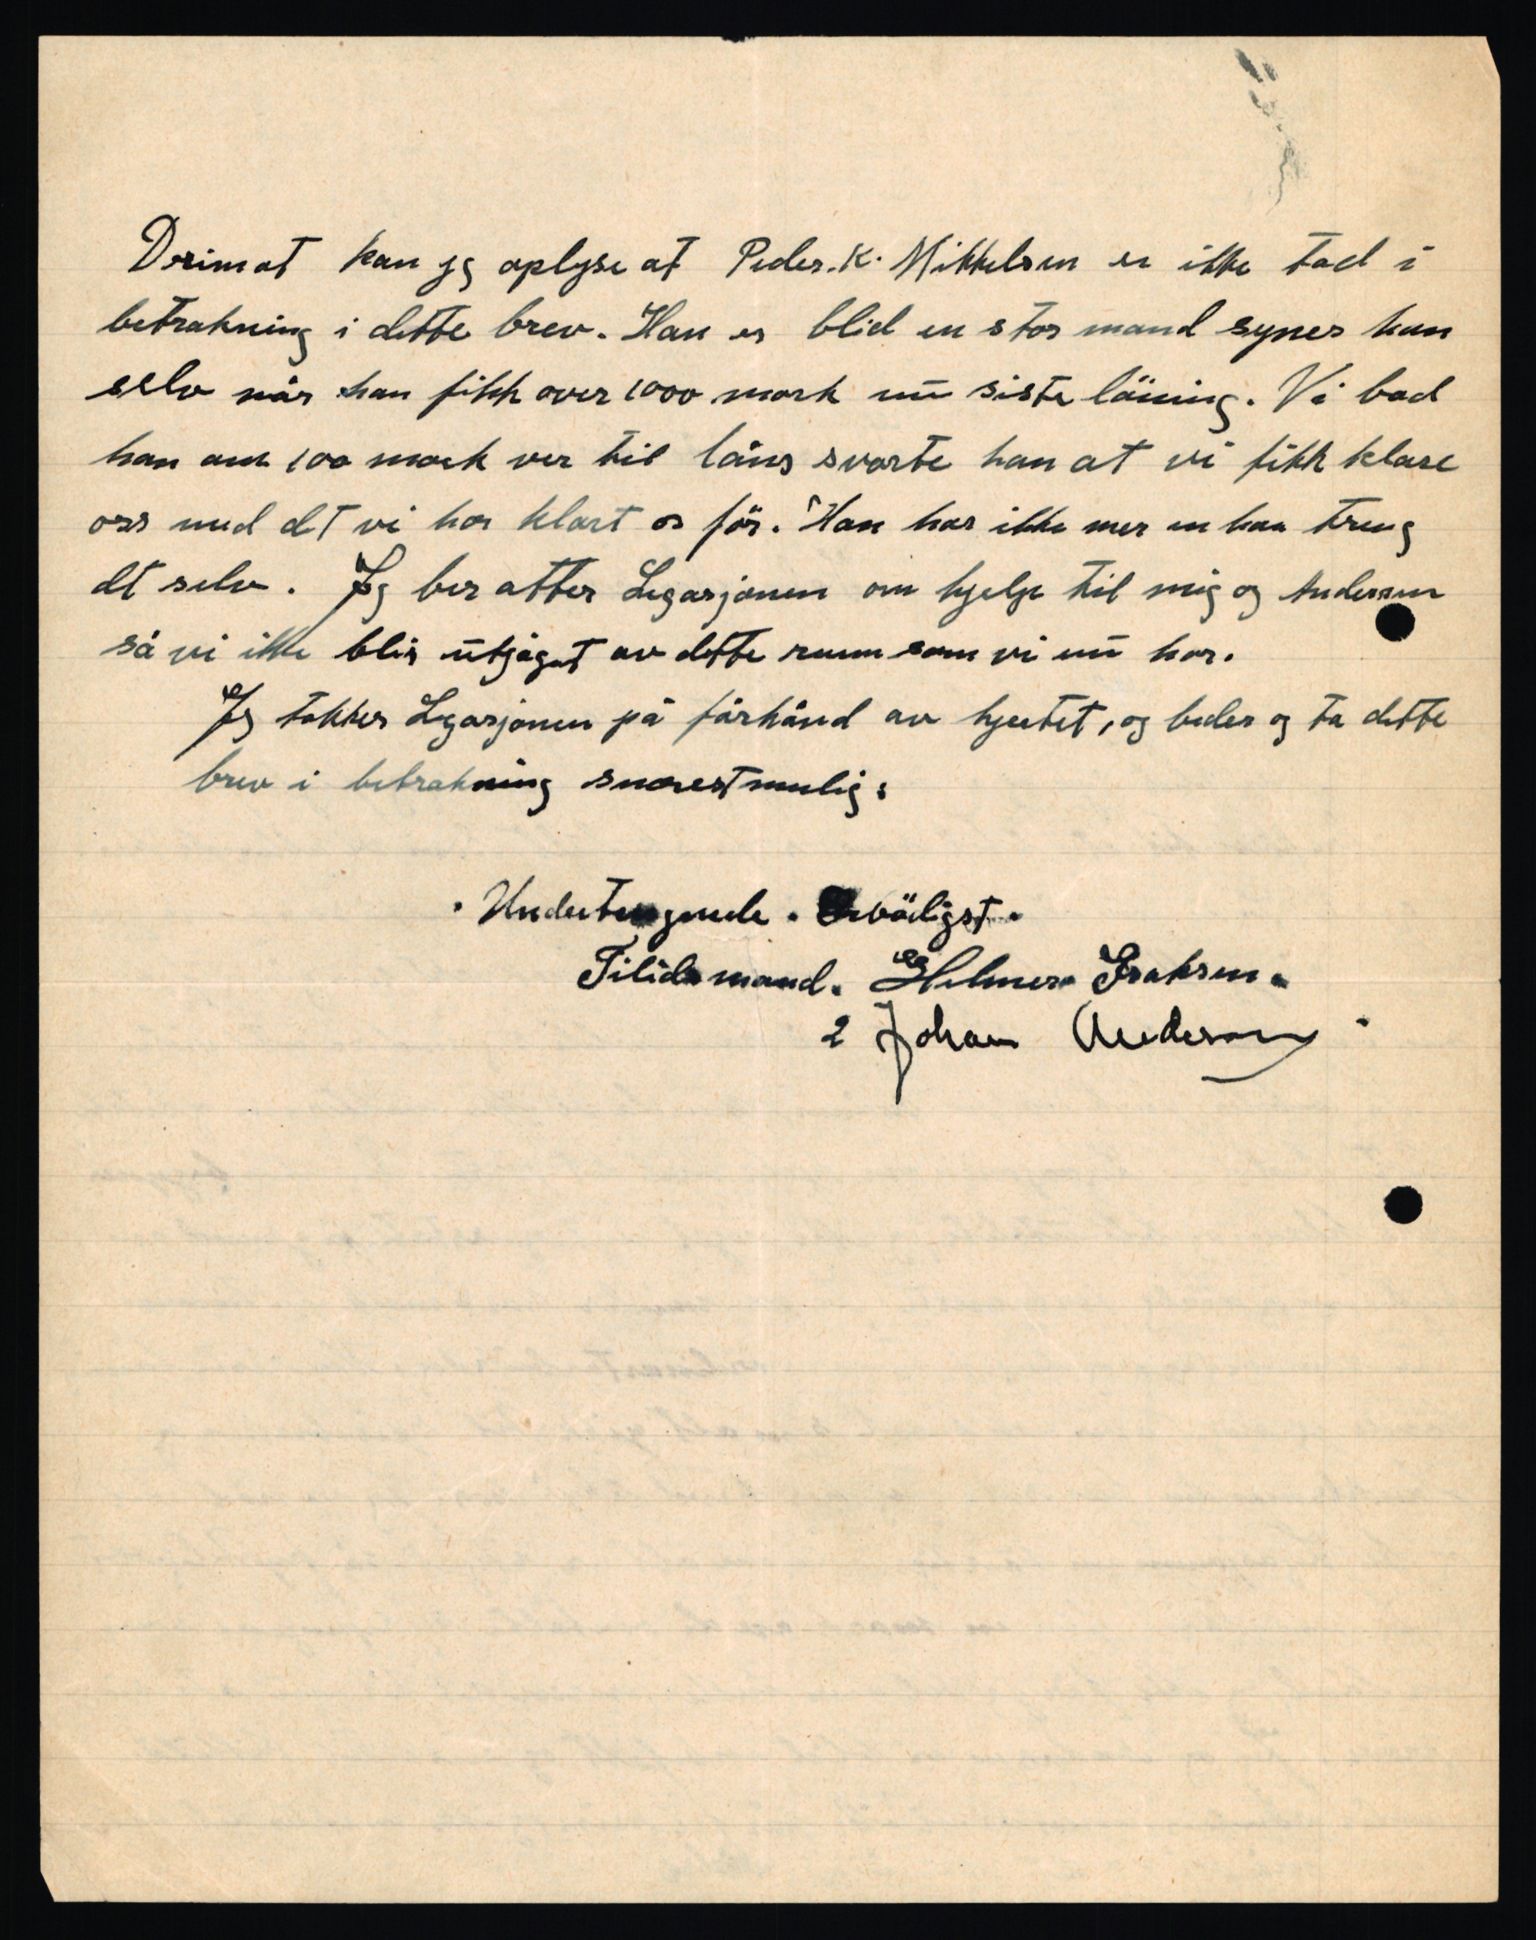 Derimot kan jg oplyse at Peder. K. Mikkelsen er ikke tad i
betrakning i dette brev. Han er blid en stor mand synes han
selv når han fikk over 1000 mark nu siste låning. Vi bad
han om 100 mark ver til låns svarte han at vi fikk klare
oss med dt vi har klart os før. Han har ikke mer en han treng
dt selv. Jeg ber atter Legasjonen om hjelp til mig og Andersen
så vi ikke blir utjaget av dette rumm som vi nu har.
Jeg takker Legasjonen på förhånd av hjertet, og beder og ta dette
brev i betrakning snarest mulig.
Undertegnede. Ervødigst.
Tilidsmand. Helmer Isaksen.
2 Johan Anderson